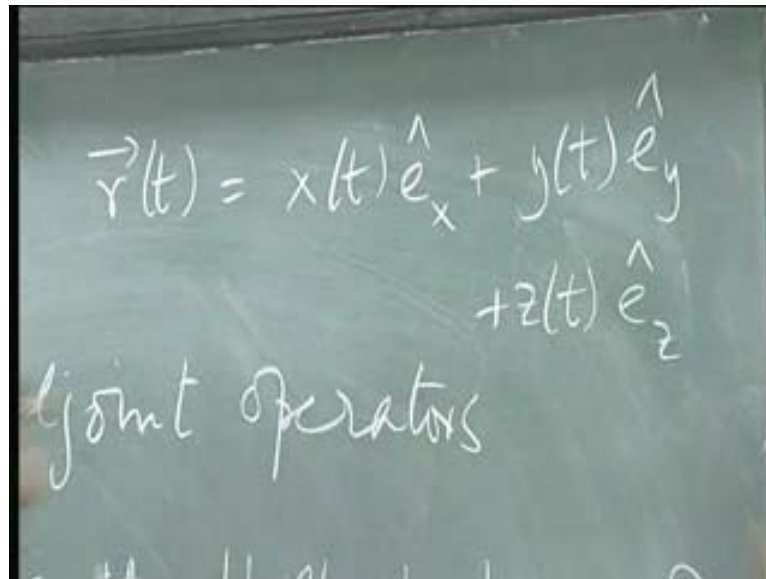 r⃗(t) = x(t) ê_x + y(t) ê_y
+ z(t) ê_z
joint operators